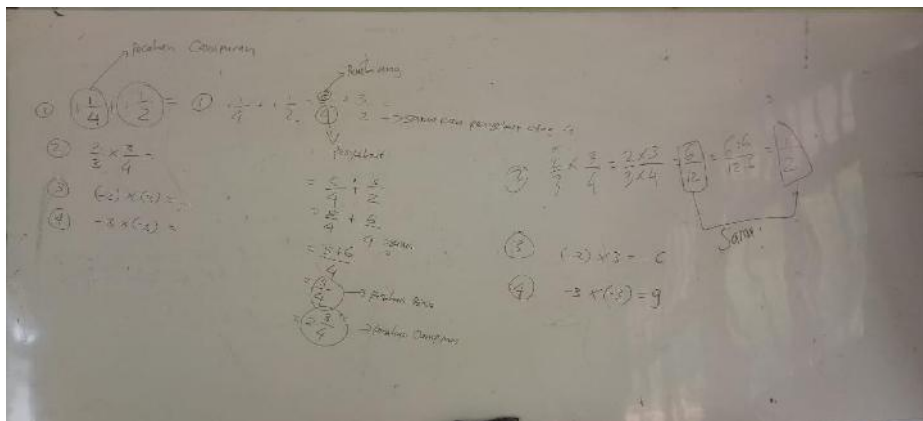 Pecahan Campuran
① 1 1/4 + 1 1/2 =
② 2/3 × 3/4 =
③ (-2) × (3) =
④ -3 × (-3) =
① 1 1/4 + 1 1/2 = 5/4 + 3/2
Pembilang
→ samakan penyebut
Penyebut
= 5/4 + 3/2
= 5/4 + 6/4
= 5+6/4
→ pecahan
= 2 3/4 → pecahan Campuran
② 2/3 × 3/4 = 2×3/3×4 = 6/12 = 6:6/12:6 = 1/2
Sama
③ (-2) × 3 = -6
④ -3 × (-3) = 9